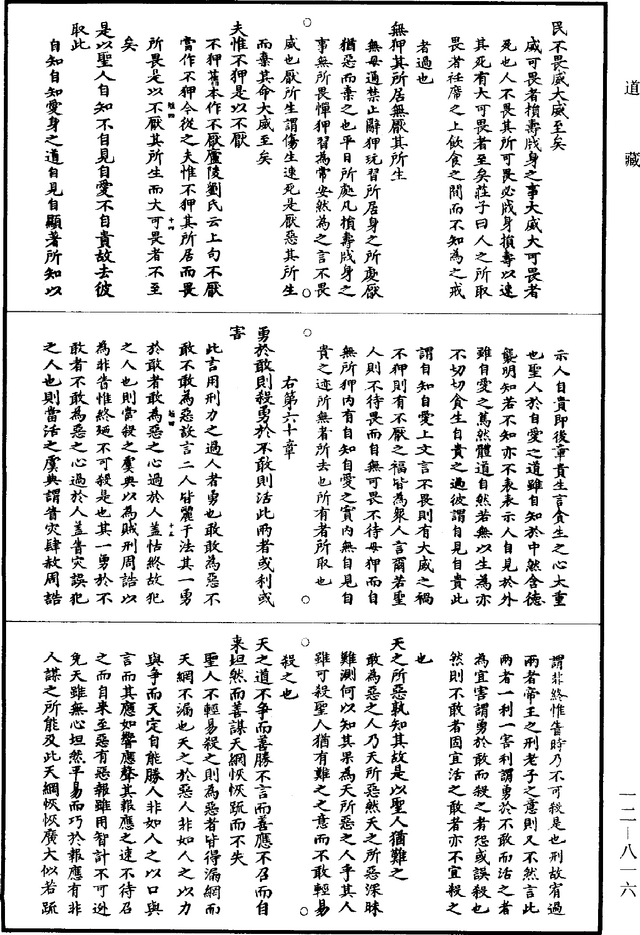 道藏
民不畏威大威至矣
威可畏者損壽戕身之事大威大可畏者
死也人不畏其所可畏必戕身損壽以速
其死有大可畏者至矣莊子曰人之所取
畏者衽席之上飲食之間而不知為之戒
者過也
無狎其所居無厭其所生
無毋通禁止辭狎玩習所居身之所處厭
猶惡而棄之也平日所處凡損壽戕身之
事無所畏憚狎習為常安然為之言不畏
威也厭所生謂傷生速死是厭惡其所生
而棄其命大威至矣
夫惟不狎是以不厭
不狎舊本作不厭廬陵劉氏云上句不厭
當作不狎今從之夫惟不狎其所居而畏
所畏是以不厭其所生而大可畏者不至
矣
是以聖人自知不自見自愛不自貴故去彼
取此
自知自知愛身之道自見自顯著所知以
示人自貴即後章貴生言貪生之心太重
也聖人於自愛之道雖自知於中然含德
襲明知若不知亦不表表示人自見於外
雖自愛之篤然體道自然若無以生為亦
不切切貪生自貴之過彼謂自見自貴此
謂自知自愛上文言不畏則有大威之禍
不狎則有不厭之福皆為衆人言爾若聖
人則不待畏而自無可畏不待毋狎而自
無所狎內有自知自愛之實內無自見自
貴之迹所無者所去也所有者所取也
右第六十章
勇於敢則殺勇於不敢則活此兩者或利或
害
此言用刑力之過人者勇也敢敢為惡不
敢不敢為惡設言二人皆麗于法其一勇
於敢者敢為惡之心過於人蓋怙終故犯
之人也則當殺之虞典以為賊刑周誥以
為非眚惟終殛不可殺是也其一勇於不
敢者不敢為惡之心過於人蓋眚災誤犯
之人也則當活之虞典謂眚災肆赦周誥
謂非終惟眚時乃不可殺是也刑故宥過
兩者帝王之刑老子之意則又不然言此
兩者一利一害利謂勇於不敢而活之者
為宜害謂勇於敢而殺之者恐或誤殺也
然則不敢者固宜活之敢者亦不宜殺之
也
天之所惡孰知其故是以聖人猶難之
敢為惡之人乃天所惡然天之所惡深昧
難測何以知其果為天所惡之人乎其人
雖可殺聖人猶有難之之意而不敢輕易
殺之也
天之道不爭而善勝不言而善應不召而自
來坦然而善謀天網恢恢疏而不失
聖人不輕易殺之則為惡者皆得漏網而
天網不漏也天之於惡人非如人之以力
與爭而天定自能勝人非如人之以口與
言而其應如響應聲其報應之速不待召
之而自來至惡有惡報雖用智計不可逃
免天雖無心坦然平易而巧於報應有非
人謀之所能及此天網恢恢廣大似若疏
一二—八一六